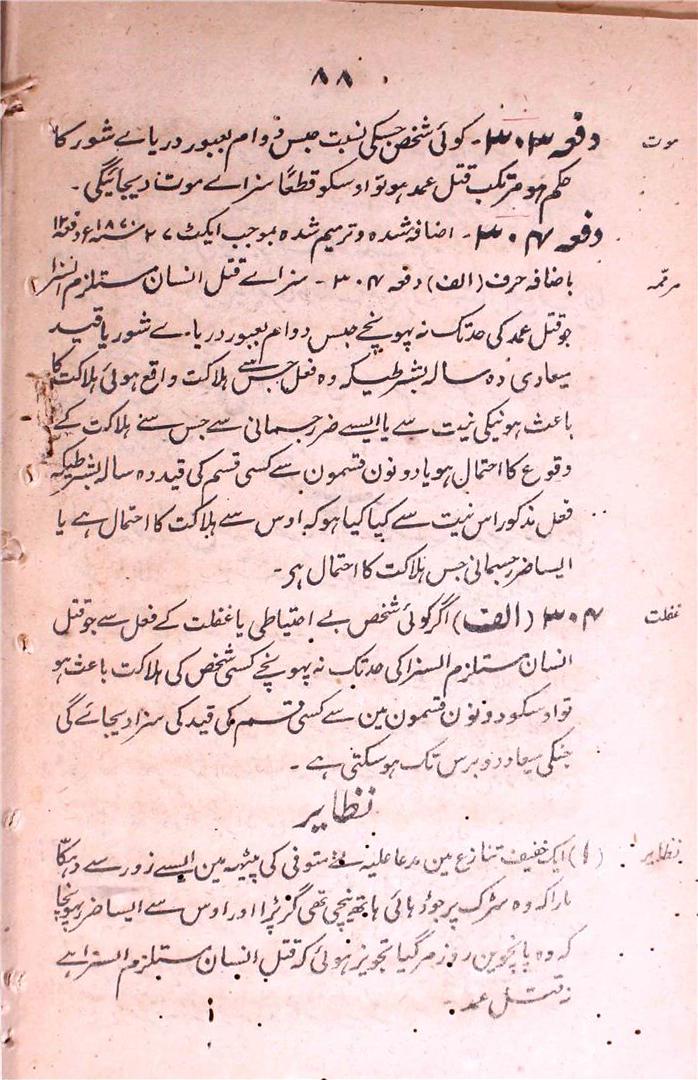 ۸۸
موت
دفعہ ۳۰۳- کوئی شخص جسکی نسبت حبس دوام بعبور دریاے شور کا
حکم ہو مرتکب قتل عمد ہو تو اوسکو قطعاً سزاے موت دیجائیگی-
دفعہ ۳۰۴- اضافہ شدہ و ترمیم شدہ بموجب ایکٹ ۲۷ سنہ ۱۸۷۰ع دفعہ ۱۲
مرقمہ
باضافہ حرف (الف) دفعہ ۳۰۴- سزاے قتل انسان مستلزم السزا
جو قتل عمد کی حد تک نہ پہونچے حبس دوام بعبور دریاے شور یا قید
میعادی دہ سالہ بشرطیکہ وہ فعل جس سے ہلاکت واقع ہوئی ہلاکت کا
باعث ہونیکی نیت سے یا ایسے ضرر جسمانی سے جس سے ہلاکت کے
وقوع کا احتمال ہو یا دونون قسمون سے کسی قسم کی قید دہ سالہ بشرطیکہ
فعل مذکور اس نیت سے کیا گیا ہو کہ اوس سے ہلاکت کا احتمال ہے یا
ایسا ضرر جسمانی جس ہلاکت کا احتمال ہو-
غفلت
۳۰۴ (الف) اگر کوئی شخص بے احتیاطی یا غفلت کے فعل سے جو قتل
انسان مستلزم السزا کی حد تک نہ پہونچے کسی شخص کی ہلاکت باعث ہو
تو اوسکو دونون قسمون مین سے کسی قسم کی قید کی سزا دیجائے گی
جنکی میعاد دو برس تک ہو سکتی ہے-
نظایر
نظایر
(۱) ایک خفیف تنازع مین مدعا علیہ نے متوفی کی پیٹھ مین ایسے زور سے دہکا
مارا کہ وہ سڑک پر جو ڈہائی ہاتھ نیچی تھی گر پڑا اور اوس سے ایسا ضرر پہونچا
کہ وہ پانچوین روز مر گیا تجویز ہوئی کہ قتل انسان مستلزم السزا ہے
نہ قتل عمد-